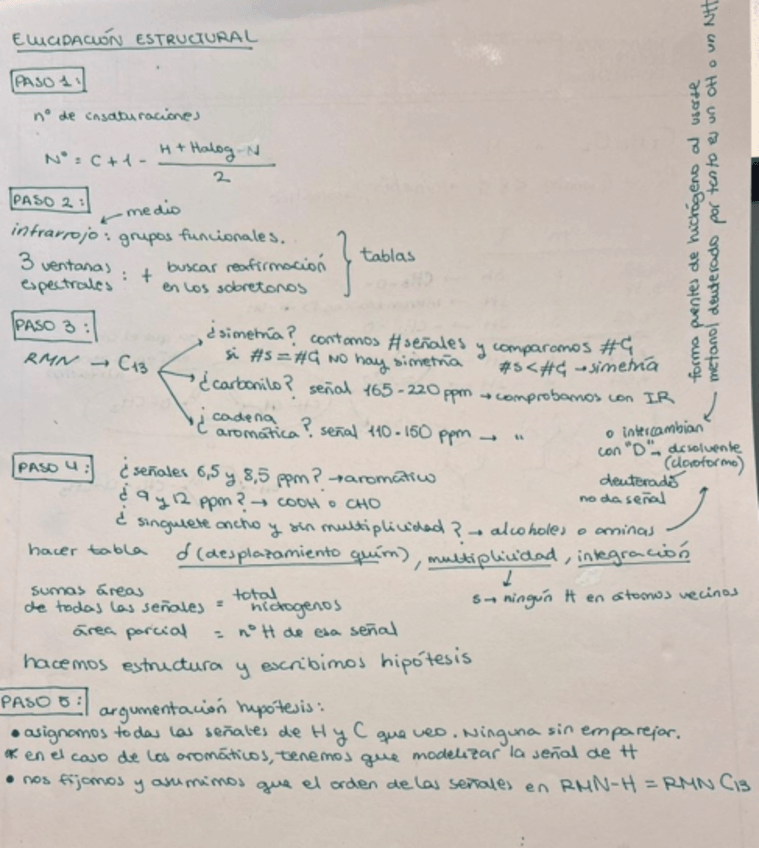 ELUCIDACIÓN ESTRUCTURAL
PASO 1:
nº de insaturaciones
Nº = C + 1 - (H + Halog - N) / 2
PASO 2:
medio
infrarrojo: grupos funcionales.
3 ventanas espectrales : + buscar reafirmación en los sobretonos } tablas
PASO 3:
RMN → C13
¿simetría? contamos #señales y comparamos #C
si #S = #C NO hay simetría #S < #C → simetría
¿carbonilo? señal 165-220 ppm → comprobamos con IR
¿cadena aromática? señal 110-150 ppm → "
PASO 4:
¿señales 6,5 y 8,5 ppm? → aromático
¿ 9 y 12 ppm? → COOH o CHO
¿ singulete ancho y sin multiplicidad? → alcoholes o aminas
forma puentes de hidrógeno al usarse
metanol deuterado por tanto es un OH o un NH
o intercambian
con "D" → disolvente
(cloroformo)
deuterado
no da señal
hacer tabla δ (desplazamiento quím), multiplicidad, integración
s → ningún H en átomos vecinos
sumas áreas
de todas las señales = total hidrógenos
área parcial = nº H de esa señal
hacemos estructura y escribimos hipótesis
PASO 5:
argumentación hipótesis:
• asignamos todas las señales de H y C que veo. Ninguna sin emparejar.
* en el caso de los aromáticos, tenemos que modelizar la señal de H
• nos fijamos y asumimos que el orden de las señales en RMN-H = RMN C13